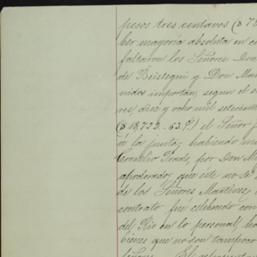 pesos tres centavos ($ 78
ber mayoria absoluta en c
faltaron los Señores Mon
de Béistegui y Don Ma
nidos importan, segun el e
nes diez y ocho mil setecien
($ 18,722..63.⁹) el Señor
á la junta, habiendo un
Consulio Prado, por Don M
apoderados que este no se
de los Señores Martinez
contrato fué celebrado con
del Rio en lo personal, ha
bienes que no son tampoco